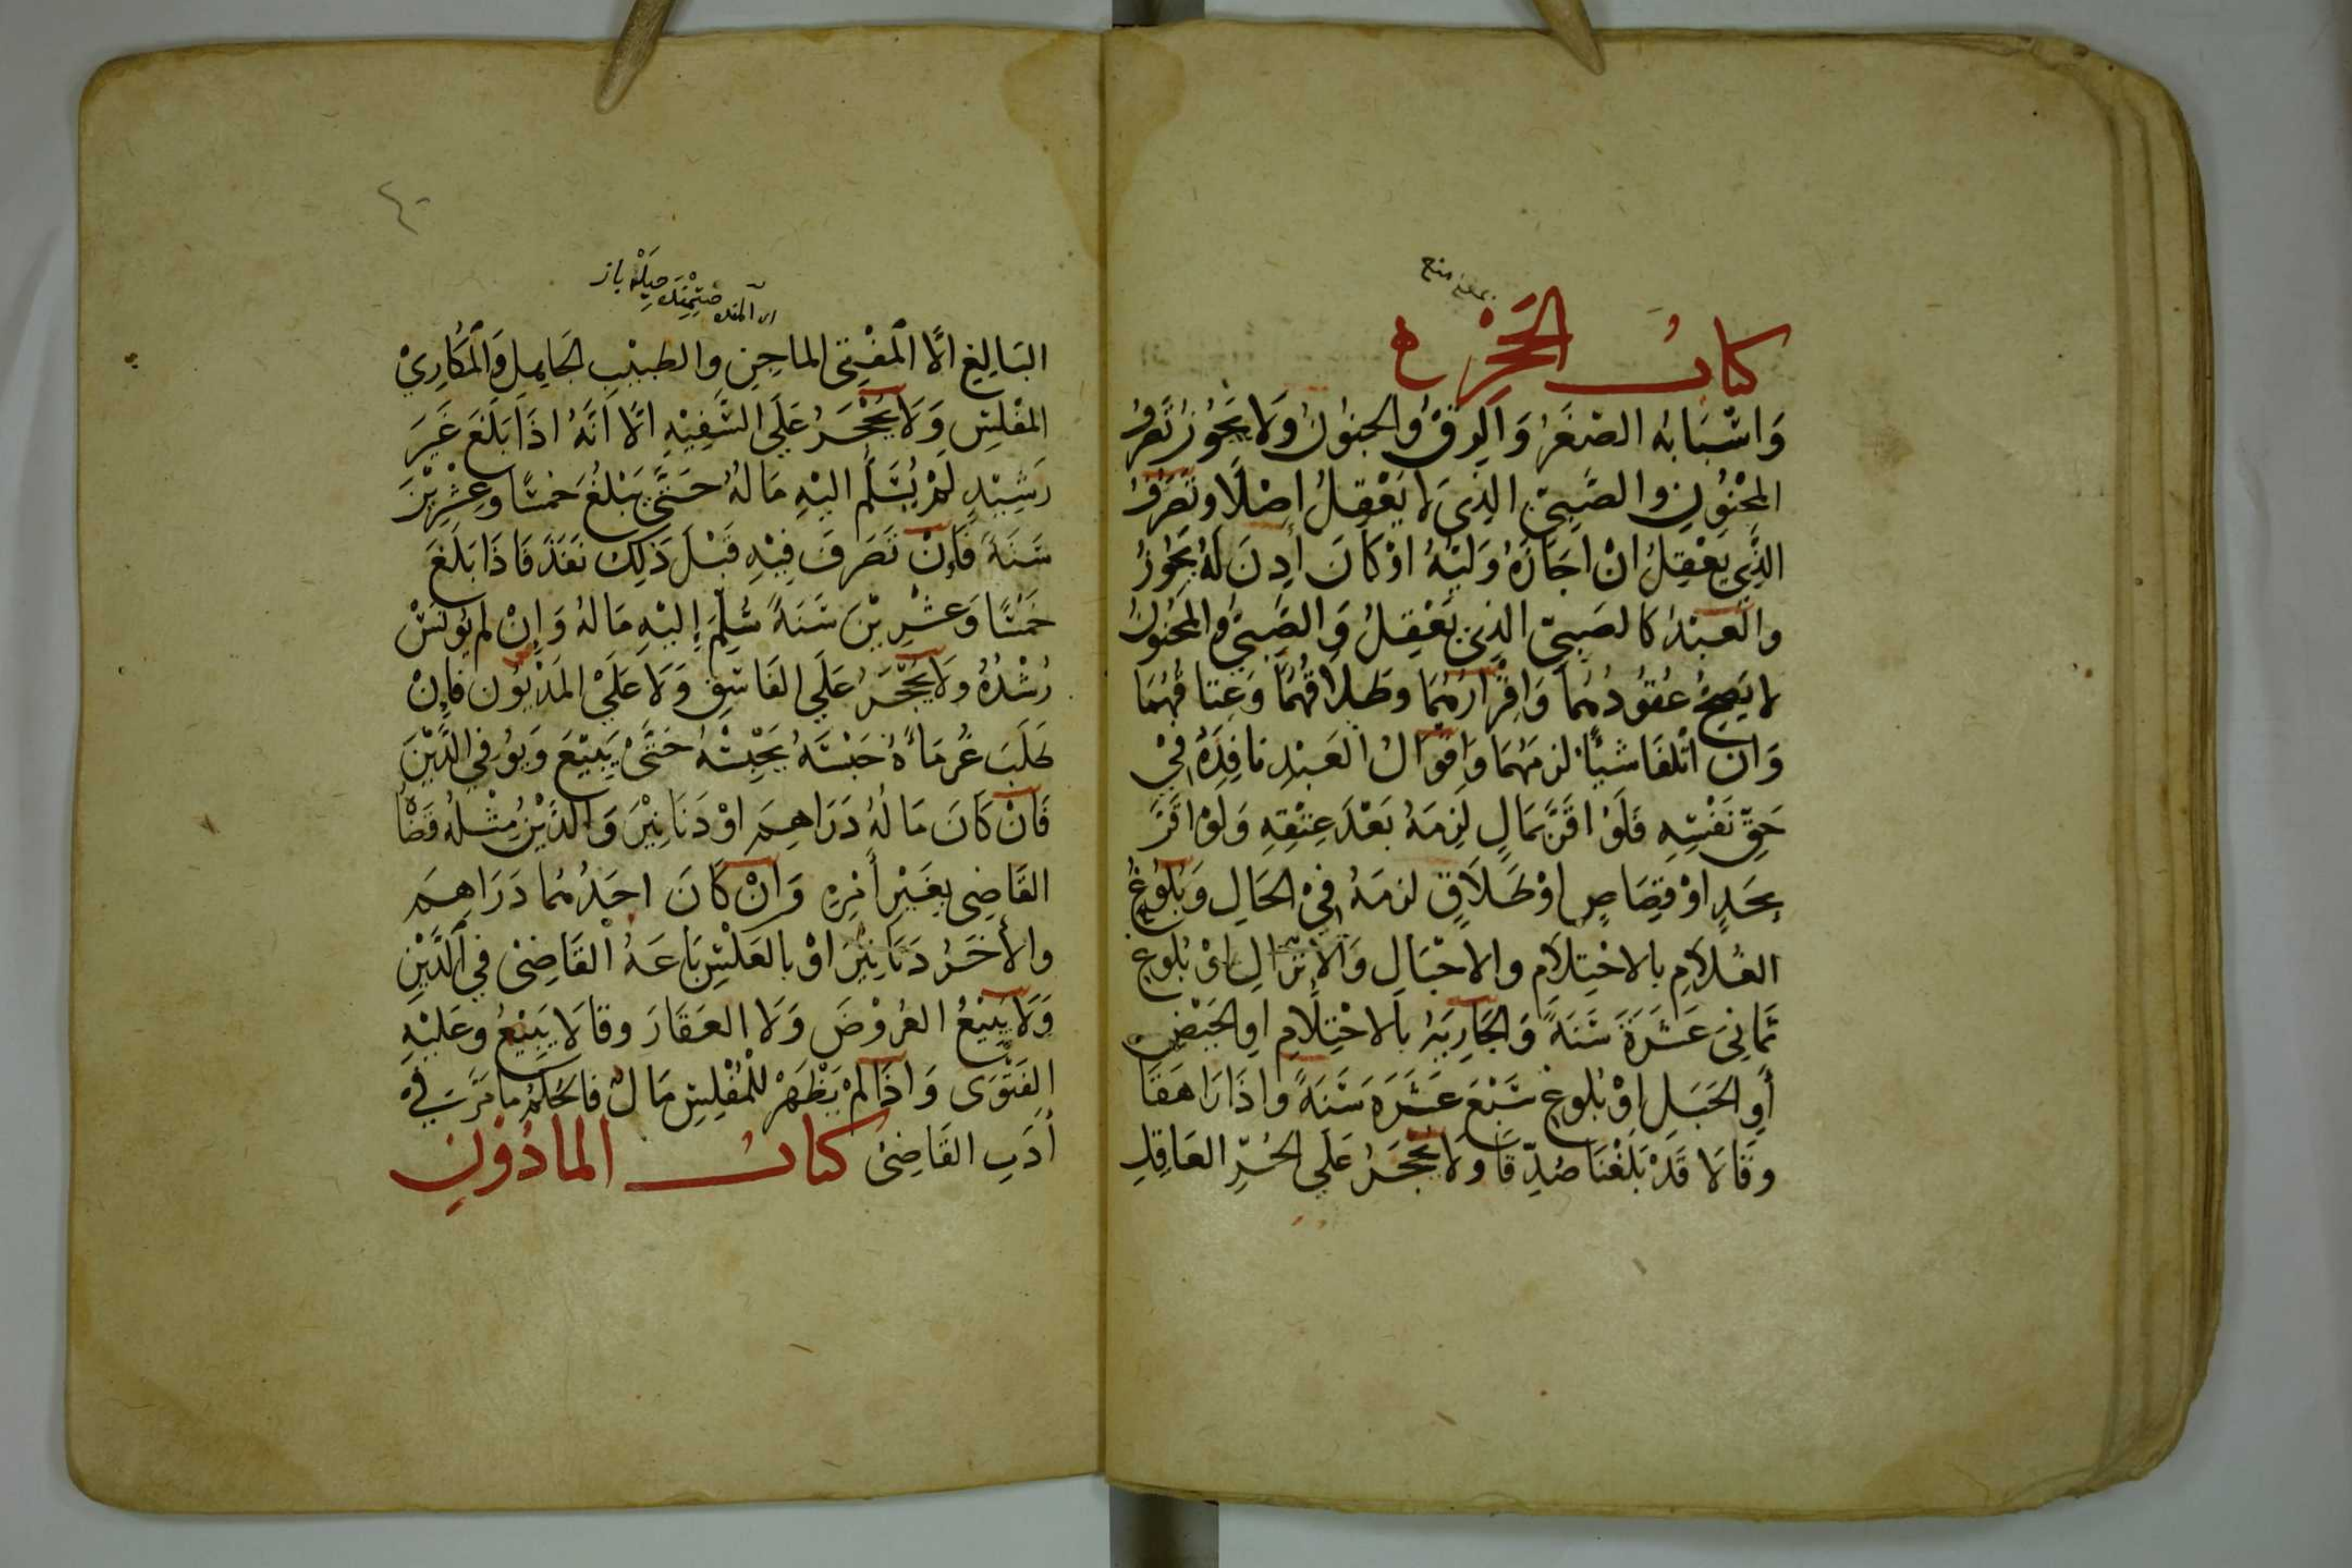 كتاب الحجر
وَاسْبَابُه الصّغَرُ وَالرِقُّ وَالجنوُنُ وَلَا يَجُوزُ تَصَرّفُ
المجْنُونِ والصَّبِىّ الذِى لَا يَعْقِلُ اصْلًا وتَصَرّفُ
الذِّى يَعْقِلُ انْ اجَازَهُ وَلِيّهُ اوْ كَانَ أذِنَ لَهُ يَجُوزُ
والعَبْدُ كالصَبىّ الذِى يَعْقِلُ وَالصَّبىُّ والمجنُونُ
لا يَصِحُّ عُقُودُهُمَا وَاقْرَارُهُمَا وطَلَاقُهُمَا وَعِتَاقُهُمَا
وَان اتْلفَا شَيْأً لزمَهُمَا وَاقوَالُ العَبْدِ نَافِذَةٌ فِي
حَقّ نَفْسِهِ فَلَوْ اقَرَّ بمَالٍ لَزِمَهُ بَعْدَ عِتْقِهِ وَلَوْ اقَرَّ
بِحَدٍ اوْ قِصَاصٍ اوْ طَلَاقٍ لزمَهُ فِي الحَالِ وَبُلُوغُ
الغُلَامِ بالاحْتِلَامِ والاحْبَالِ وَالاِنْزَالِ اوْ بُلُوغِ
ثَمَانِىَ عَشَرَةَ سَنَةً وَالجَارِيَةُ بالاحْتِلَامِ اوِ الحَيْضِ
أَوِ الحَبَلِ اوْ بُلُوغِ سَبْعَ عَشَرَه سَنَةً وَاذَا رَاهَقَا
وَقَالَا قَدْ بَلَغْنَا صُدّقَا وَلَا يُحْجَرُ عَلَي الحُرّ العَاقِلِ
البَالِغِ الَّا المُفْتِى الماجِنِ والطبِيْبِ الجَاهِلِ وَالمُكَارِىْ
المفْلِسِ وَلَا يُحْجَرُ عَلَي السَّفِيْهِ الَّا انَّهُ اذَا بَلَغَ غَيْرَ
رَشِيْدٍ لَمْ يُسَلَّم اليْهِ مَالهُ حَتَّي يَبْلُغَ خمسًا وعِشْرِيْنَ
سَنَةً فَإنْ تَصَرفَ فِيْهِ قَبْلَ ذَلِكَ نَفَذَ فَاذَا بَلَغَ
خَمْسًا وَعِشْرِيْنَ سَنَةً سُلِّمَ إليْهِ مَالهُ وَإنْ لم يُونَسْ
رُشْدُهُ ولَا يُحْجَرُ عَلَي الفَاسِقِ وَلَا عَلَي المَدْيُون فَإنْ
طَلَبَ غُرمَاؤُهُ حَبْسَهُ يَحْبِسُهُ حَتَّى يَبِيْعَ وَيُوَفي الدَّيْنَ
فَانْ كَانَ مَالهُ دَرَاهِمَ اوْ دَنَانِيْرَ وَالدَّيْنُ مِثْلهُ قَضَاهُ
القَاضِى بِغَيْرِ أمْرِهِ وَانْ كَانَ احَدُهُمَا دَرَاهِمَ
والأخَرُ دَنَانِيْرَ اوْ بالعَكْسِ بَاعَهُ القَاضِى فِي الدَّيْنِ
وَلَا يَبِيْعُ العُرُوْضَ وَلَا العَقَارَ وقَالَا يَبِيْعُ وعَليْهِ
الفَتْوَى وَاذَا لَمْ يَظْهَرْ لِلمُفْلِسِ مَالٌ فالحُكْمُ مَا مَرَّ فِي
أدَبِ القَاضِى كتابُ المَاذُونِ